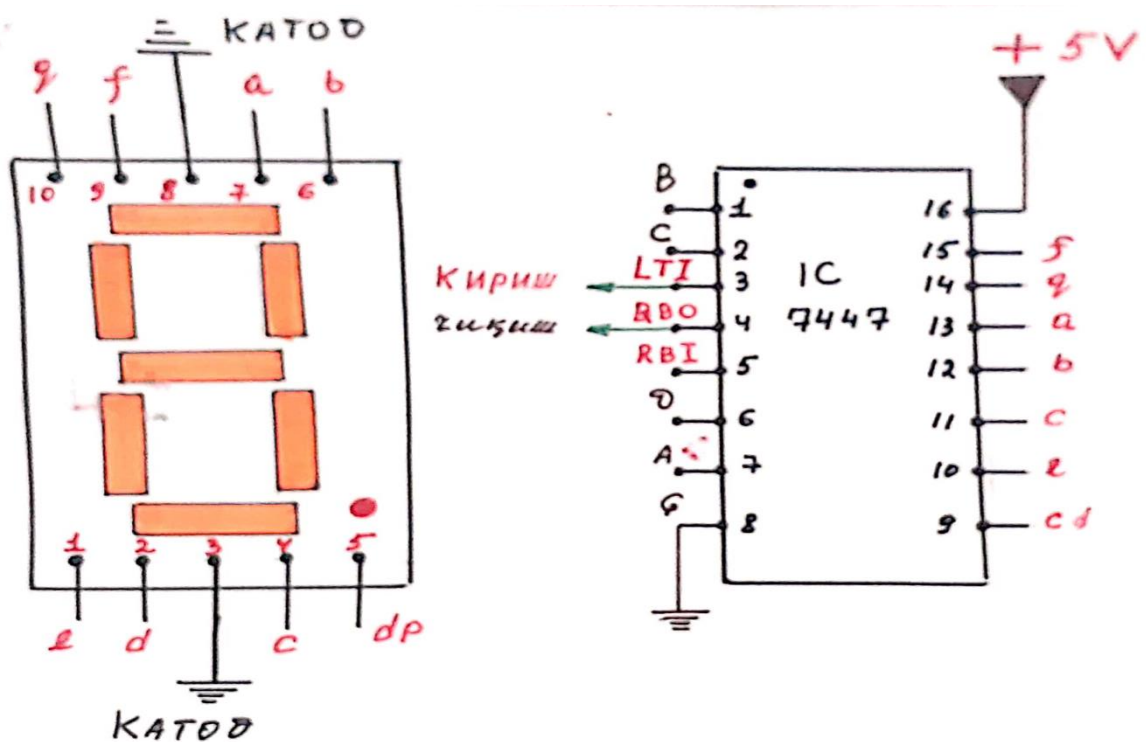 КАТОД
+ 5V
g f a b
10 9 8 7 6
1 2 3 4 5
e d c dp
КАТОД
B 1
C 2
Кириш LTI 3
чиқиш RBO 4
RBI 5
D 6
A 7
G 8
IC
7447
16
15 f
14 g
13 a
12 b
11 c
10 e
9 cd